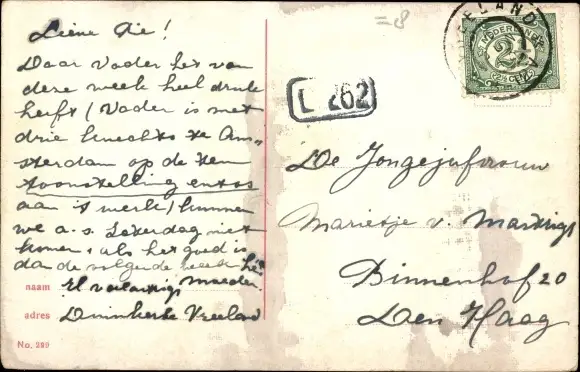 Lieve Rie!
Daar Vader het van
deze week heel druk
heeft (Vader is met
drie knechts te Am-
sterdam op de ten
toonstelling ENTOS
aan 't werk) kunnen
we a.s. Zaterdag niet
komen, als het goed is
dan de volgende week
Moeder
naam
adres Duinkerke Vreeland
No. 289
=8
VREELAND
NEDERLAND
2½
L 262
De Jongejufvrouw
Marietje v.
Binnenhof 20
Den Haag